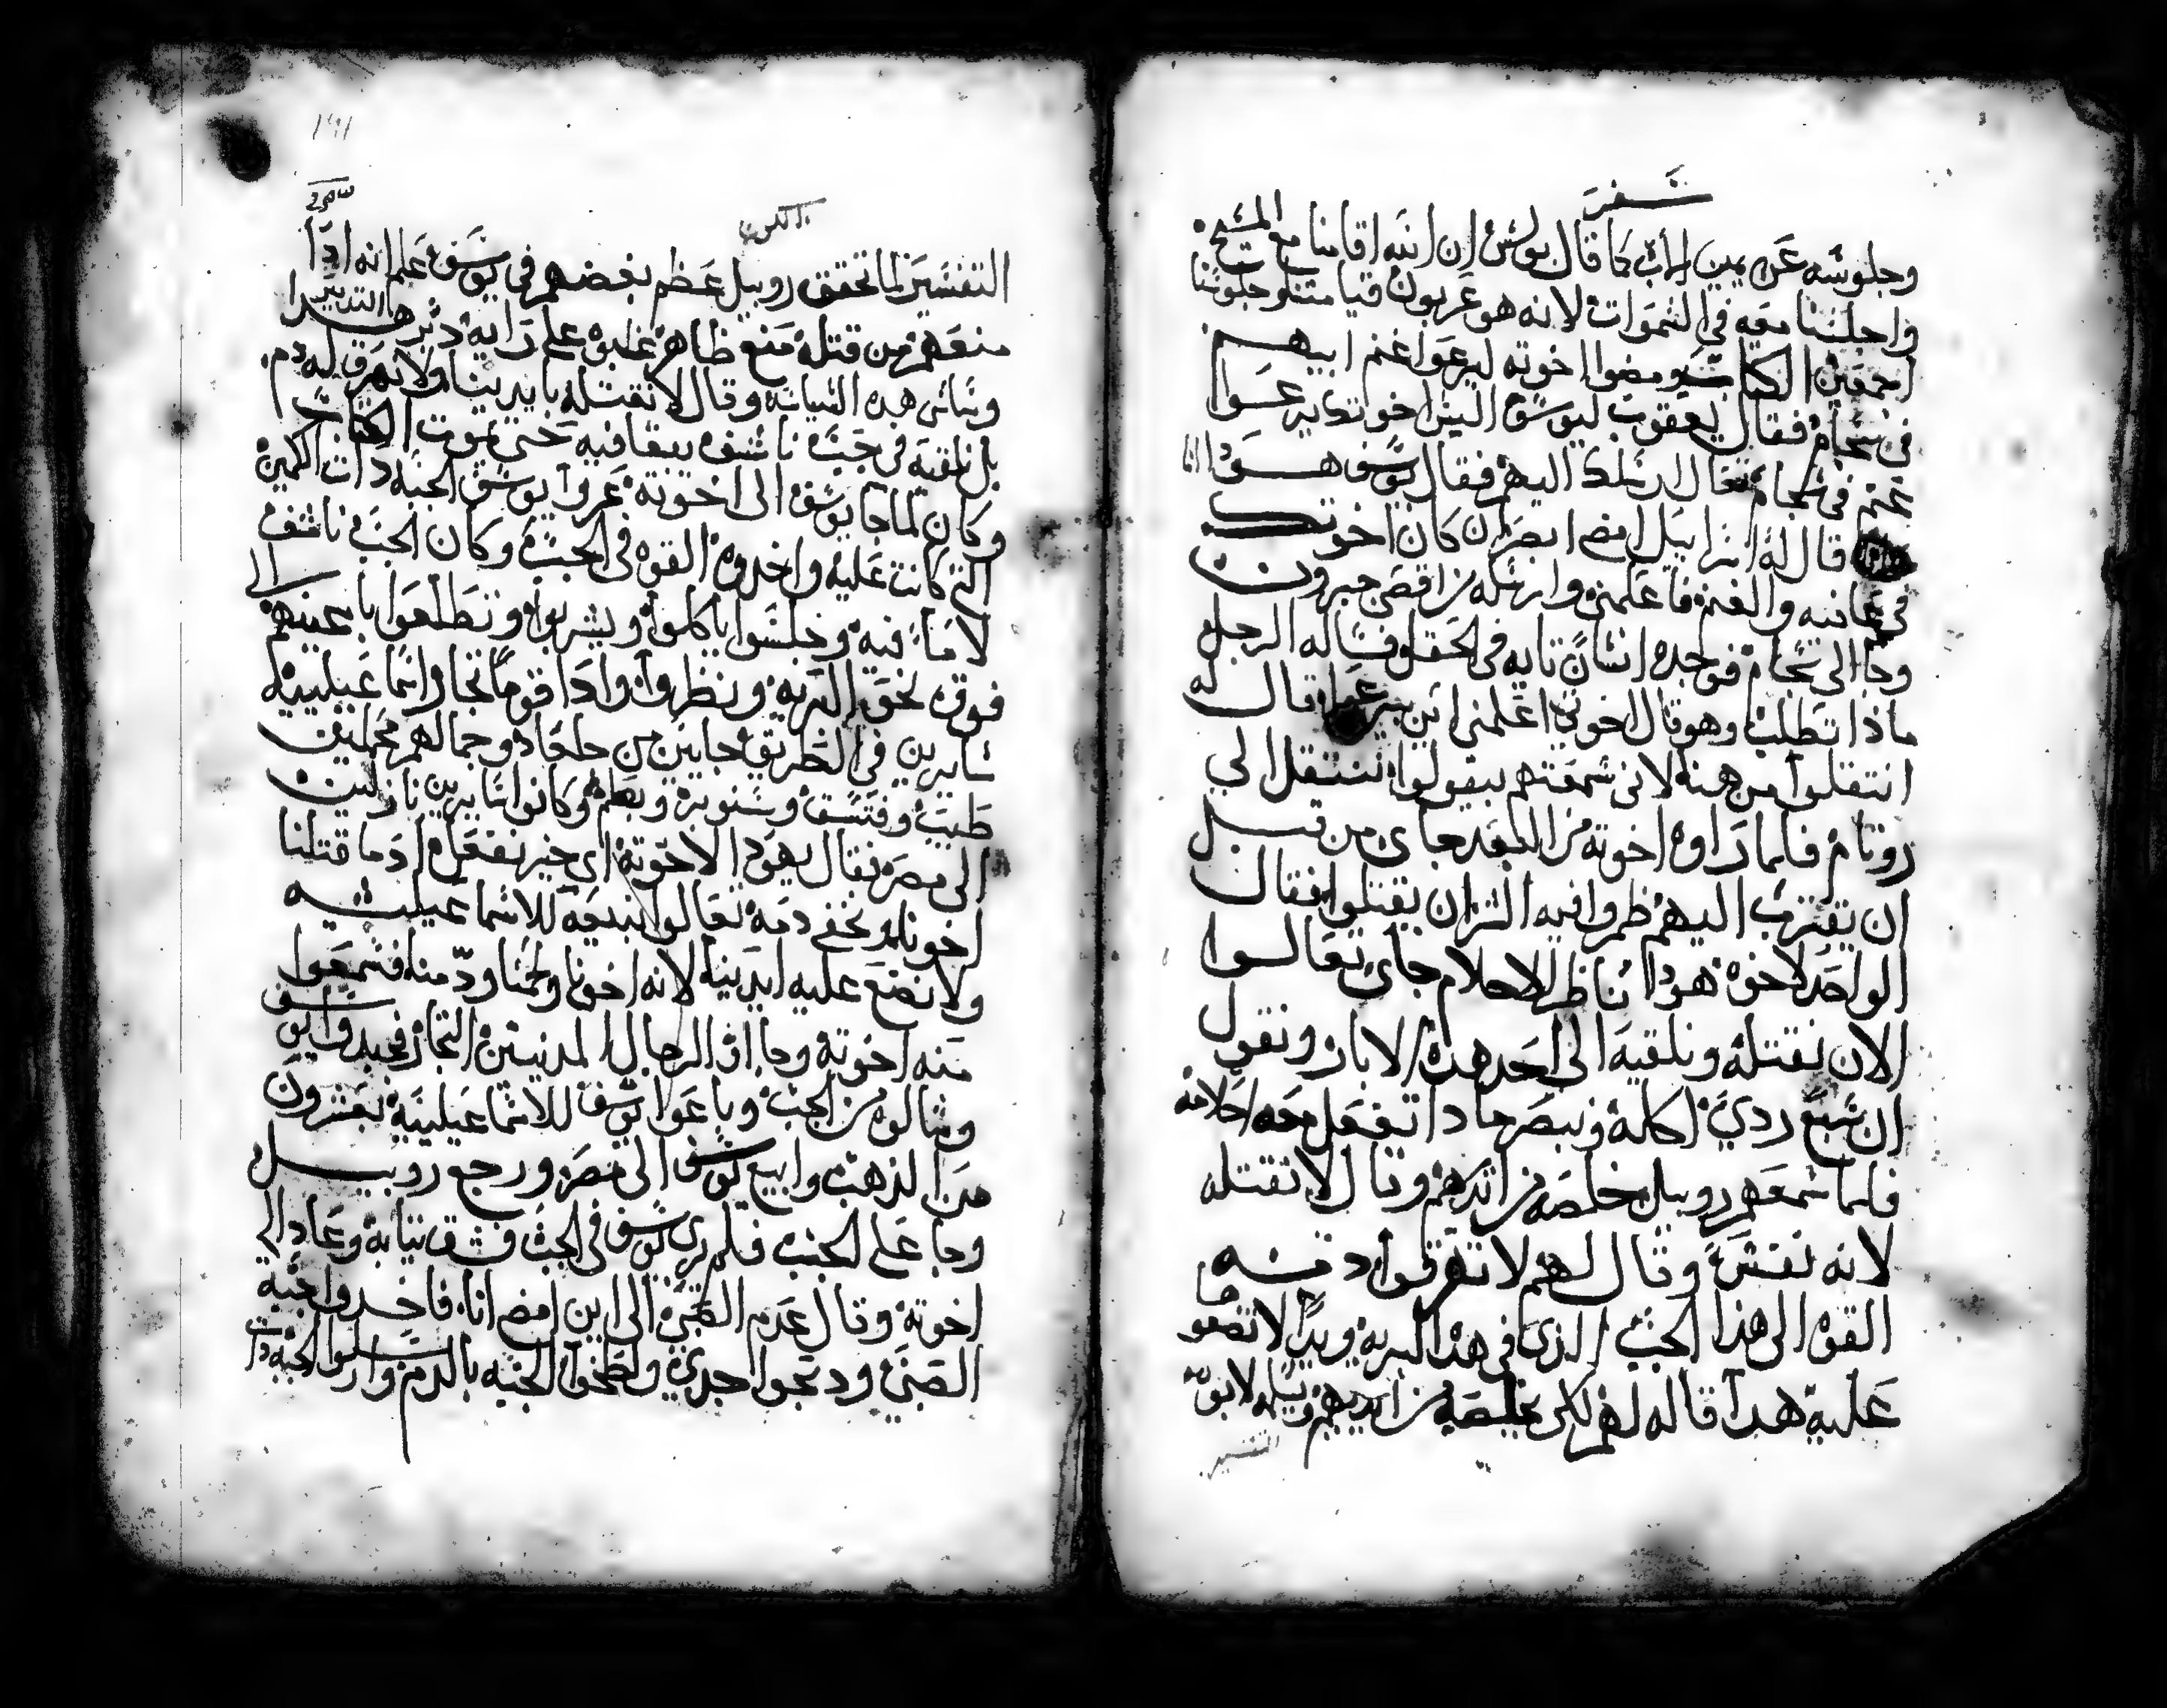 سفر
وجلوسه عن يمين الاب كما قال بولس ان الله اقامنا مع المسيح
واجلسنا معه في السموات لانه هو عربون قيامتنا وجلوسنا
اجمعين الكتاب ومضوا اخوته ليرعوا غنم ابيهم
في سخام فقال يعقوب ليوسف اليس اخوتك يرعوا
في سخام تعال ارسلك اليهم فقال يوسف هودا انا
قال له اسراييل امض ابصر ان كان اخوتك
في عافيه والغنم فاعلمني وارسله من اقصى حبرون
وجا الى سخام فوجده انسان تايه في الحقل فساله الرجل
ماذا تطلب وهو قال اخوتي اعلمني اين يرعوا قال له
انتقلوا من هنه لاني سمعتهم بيقولوا ننتقل الي
روتام فلما راوه اخوته من البعد جاى من قبل
ان يقترب اليهم ظمروا فيه الشر ان يقتلوا فقال
الواحد لاخوه هودا ناظر الاحلام جاى تعالوا
الان نقتله ونلقيه الى احد هذه الابار ونقول
ان سبع ردي اكله ونبصر مادا تفعل معه احلامه
فلما سمعهم روبيل خلصه من ايديهم وقال لا نقتله
لانه نفس وقال لهم لا تهرقوا دمه
القوه الى هذا الجب الذي في هذا البريه ويدا لا تضعوها
عليه هدا قاله لهم لكي يخلصه من ايديهم ويسلمه لابوه
التفسير
التكوين
التفسير لما تحقق روبيل عظم بغضهم في يوسف علم انه ادا
منعهم من قتله منع ظاهر غلبوه على رايه دبر هدا التدبير
وساس هده السياسه وقال لا نقتله بايدينا ولا نهرق له دم
بل نلقيه في جب ناشف يبقا فيه حتى يموت الكتاب
وكان لما جا يوسف الى اخوته عروا يوسف الجبه دات الكمين
التي كانت عليه واخدوه القوه في الجب وكان الجب ناشف
لا ما فيه وجلسوا ياكلوا ويشربوا وتطلعوا باعينهم الى
فوق نحو البريه ونظروا وادا قوما تجار اسماعيليين
سايرين في الطريق جايين من جلعاد وجمالهم محملين
طيب وفتسق وسنوبر وبطم وكانوا سايرين نازلين
الى مصر فقال يهودا لاخوته اى خير نفعل ادا ما قتلنا
اخونا ونخفي دمه تعالوا نبيعه للاسماعيليه
ولا نضع عليه ايدينا لانه اخونا ولحمنا ودمنا فسمعوا
منه اخوته وجاوا الرجال المدنيين التجار فجبدوا يوسف
وشالوه من الجب وباعوا يوسف للاسماعيليه بعشرون
من الذهب وابيع يوسف الى مصر ورجع روبيل
وجا على الجب فلم يرى يوسف في الجب فشق ثيابه وعاد الى
اخوته وقال عدم الصبي الى اين امض انا فاخدوا جبه
الصبي ودبحوا جدي ولطخوا الجبه بالدم وارسلوا الجبه دات